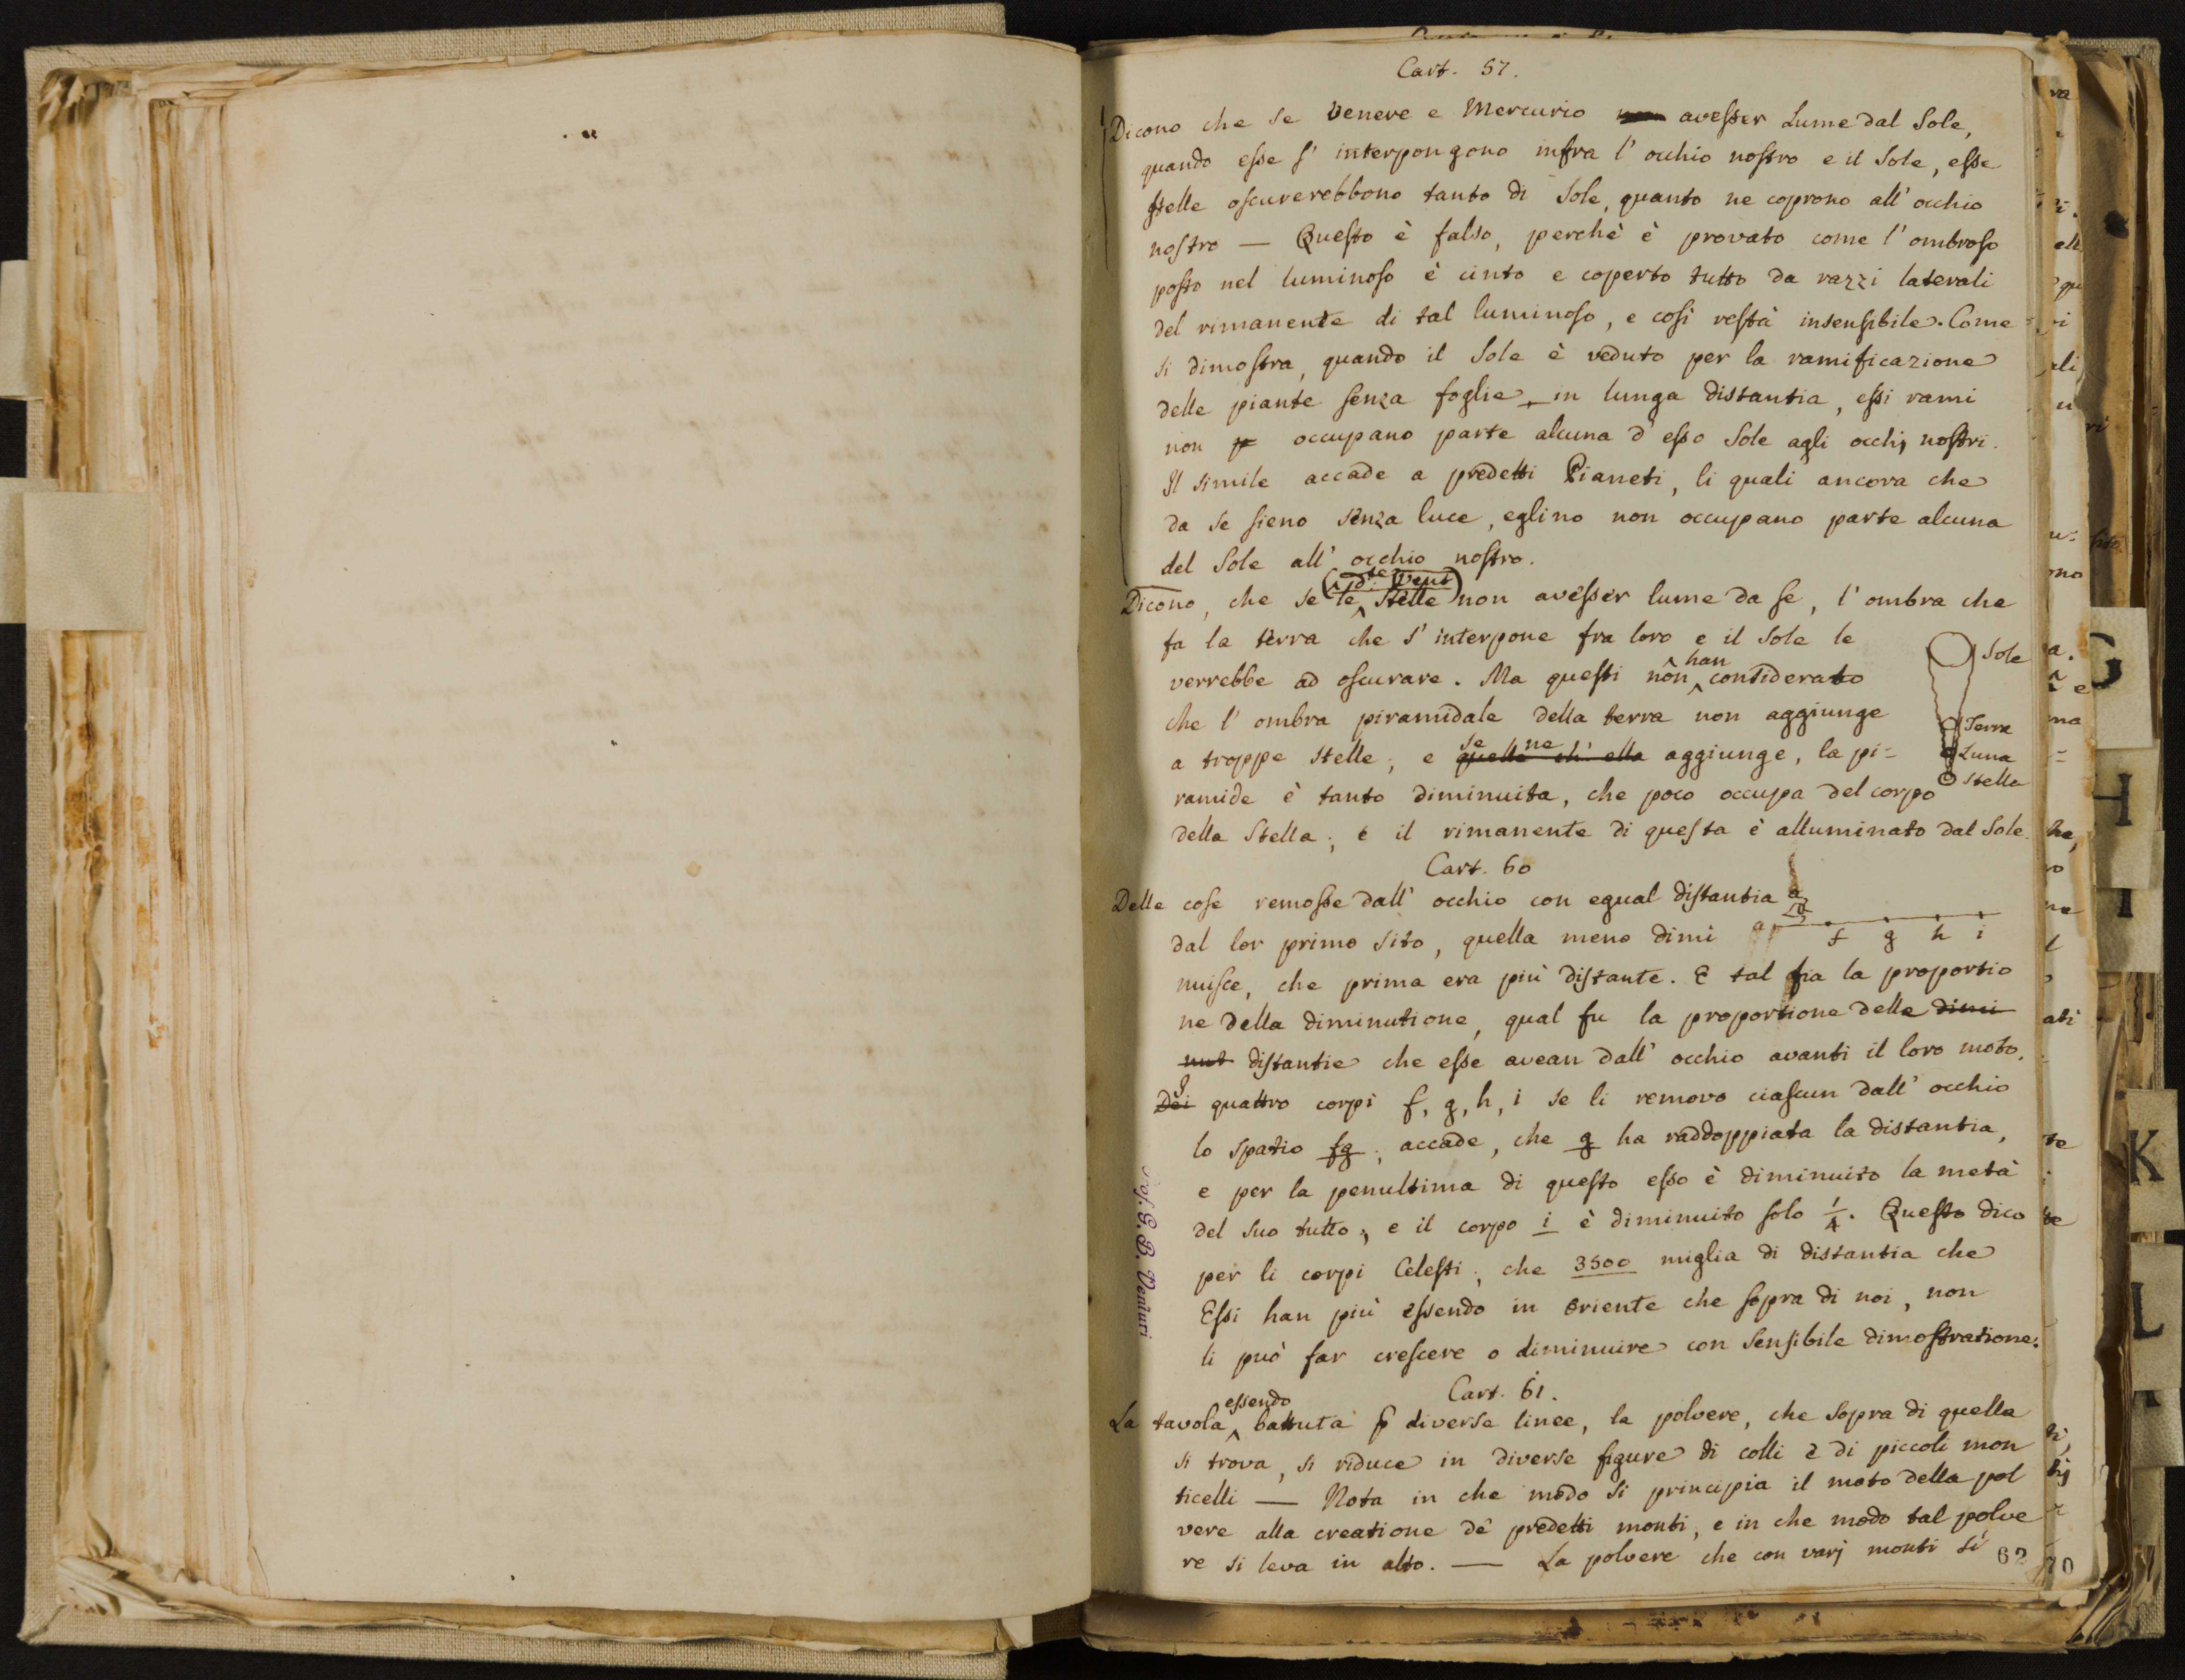 Cart. 57.
Dicono che se Venere e Mercurio avesser Lume dal Sole,
quando esse s' interpongono infra l' occhio nostro e il Sole, esse
stelle oscurerebbono tanto di Sole, quanto ne coprono all' occhio
nostro — Questo è falso, perchè è provato come l' ombroso
posto nel luminoso è cinto e coperto tutto da razzi laterali
del rimanente di tal luminoso, e così restà insensibile. Come
si dimostra, quando il Sole è veduto per la ramificazione
delle piante senza foglie in lunga distantia, essi rami
non occupano parte alcuna d' esso Sole agli occhj nostri.
Il simile accade a predetti Pianeti, li quali ancora che
da se sieno senza luce, eglino non occupano parte alcuna
del Sole all' occhio nostro.
Dicono, che se le Stelle non avesser lume da se, l' ombra che
fa la terra che s' interpone fra loro e il Sole le
verrebbe ad oscurare. Ma questi non han considerato
Sole
che l' ombra piramidale della terra non aggiunge
Terra
a troppe stelle; e se ne quelle ch' ella aggiunge, la pi=
Luna
ramide è tanto diminuita, che poco occupa del corpo
Stella
della Stella; e il rimanente di questa è alluminato dal Sole.
Cart. 60
Delle cose remosse dall' occhio con egual distantia
dal lor primo sito, quella meno dimi
a f g h i
nuisce, che prima era più distante. E tal fia la proportio
ne della diminutione, qual fu la proportione delle dimi
nut distantie che esse avean dall' occhio avanti il loro moto.
Dei I quattro corpi f, g, h, i se li removo ciascun dall' occhio
lo spatio fg; accade, che g ha raddoppiata la distantia,
e per la penultima di questo esso è diminuito la metà
del suo tutto; e il corpo i è diminuito solo 1/4. Questo dico
per li corpi Celesti; che 3500 miglia di distantia che
Essi han più essendo in Oriente che sopra di noi, non
li può far crescere o diminuire con sensibile dimostratione.
Cart. 61.
La tavola essendo battuta p diverse linee, la polvere, che sopra di quella
si trova, si riduce in diverse figure di colli e di piccoli mon
ticelli — Nota in che modo si principia il moto della pol
vere alla creatione de' predetti monti, e in che modo tal polve
re si leva in alto. — La polvere che con varj monti si
62
Prof. G. B. Venturi
70
G
H
I
K
L